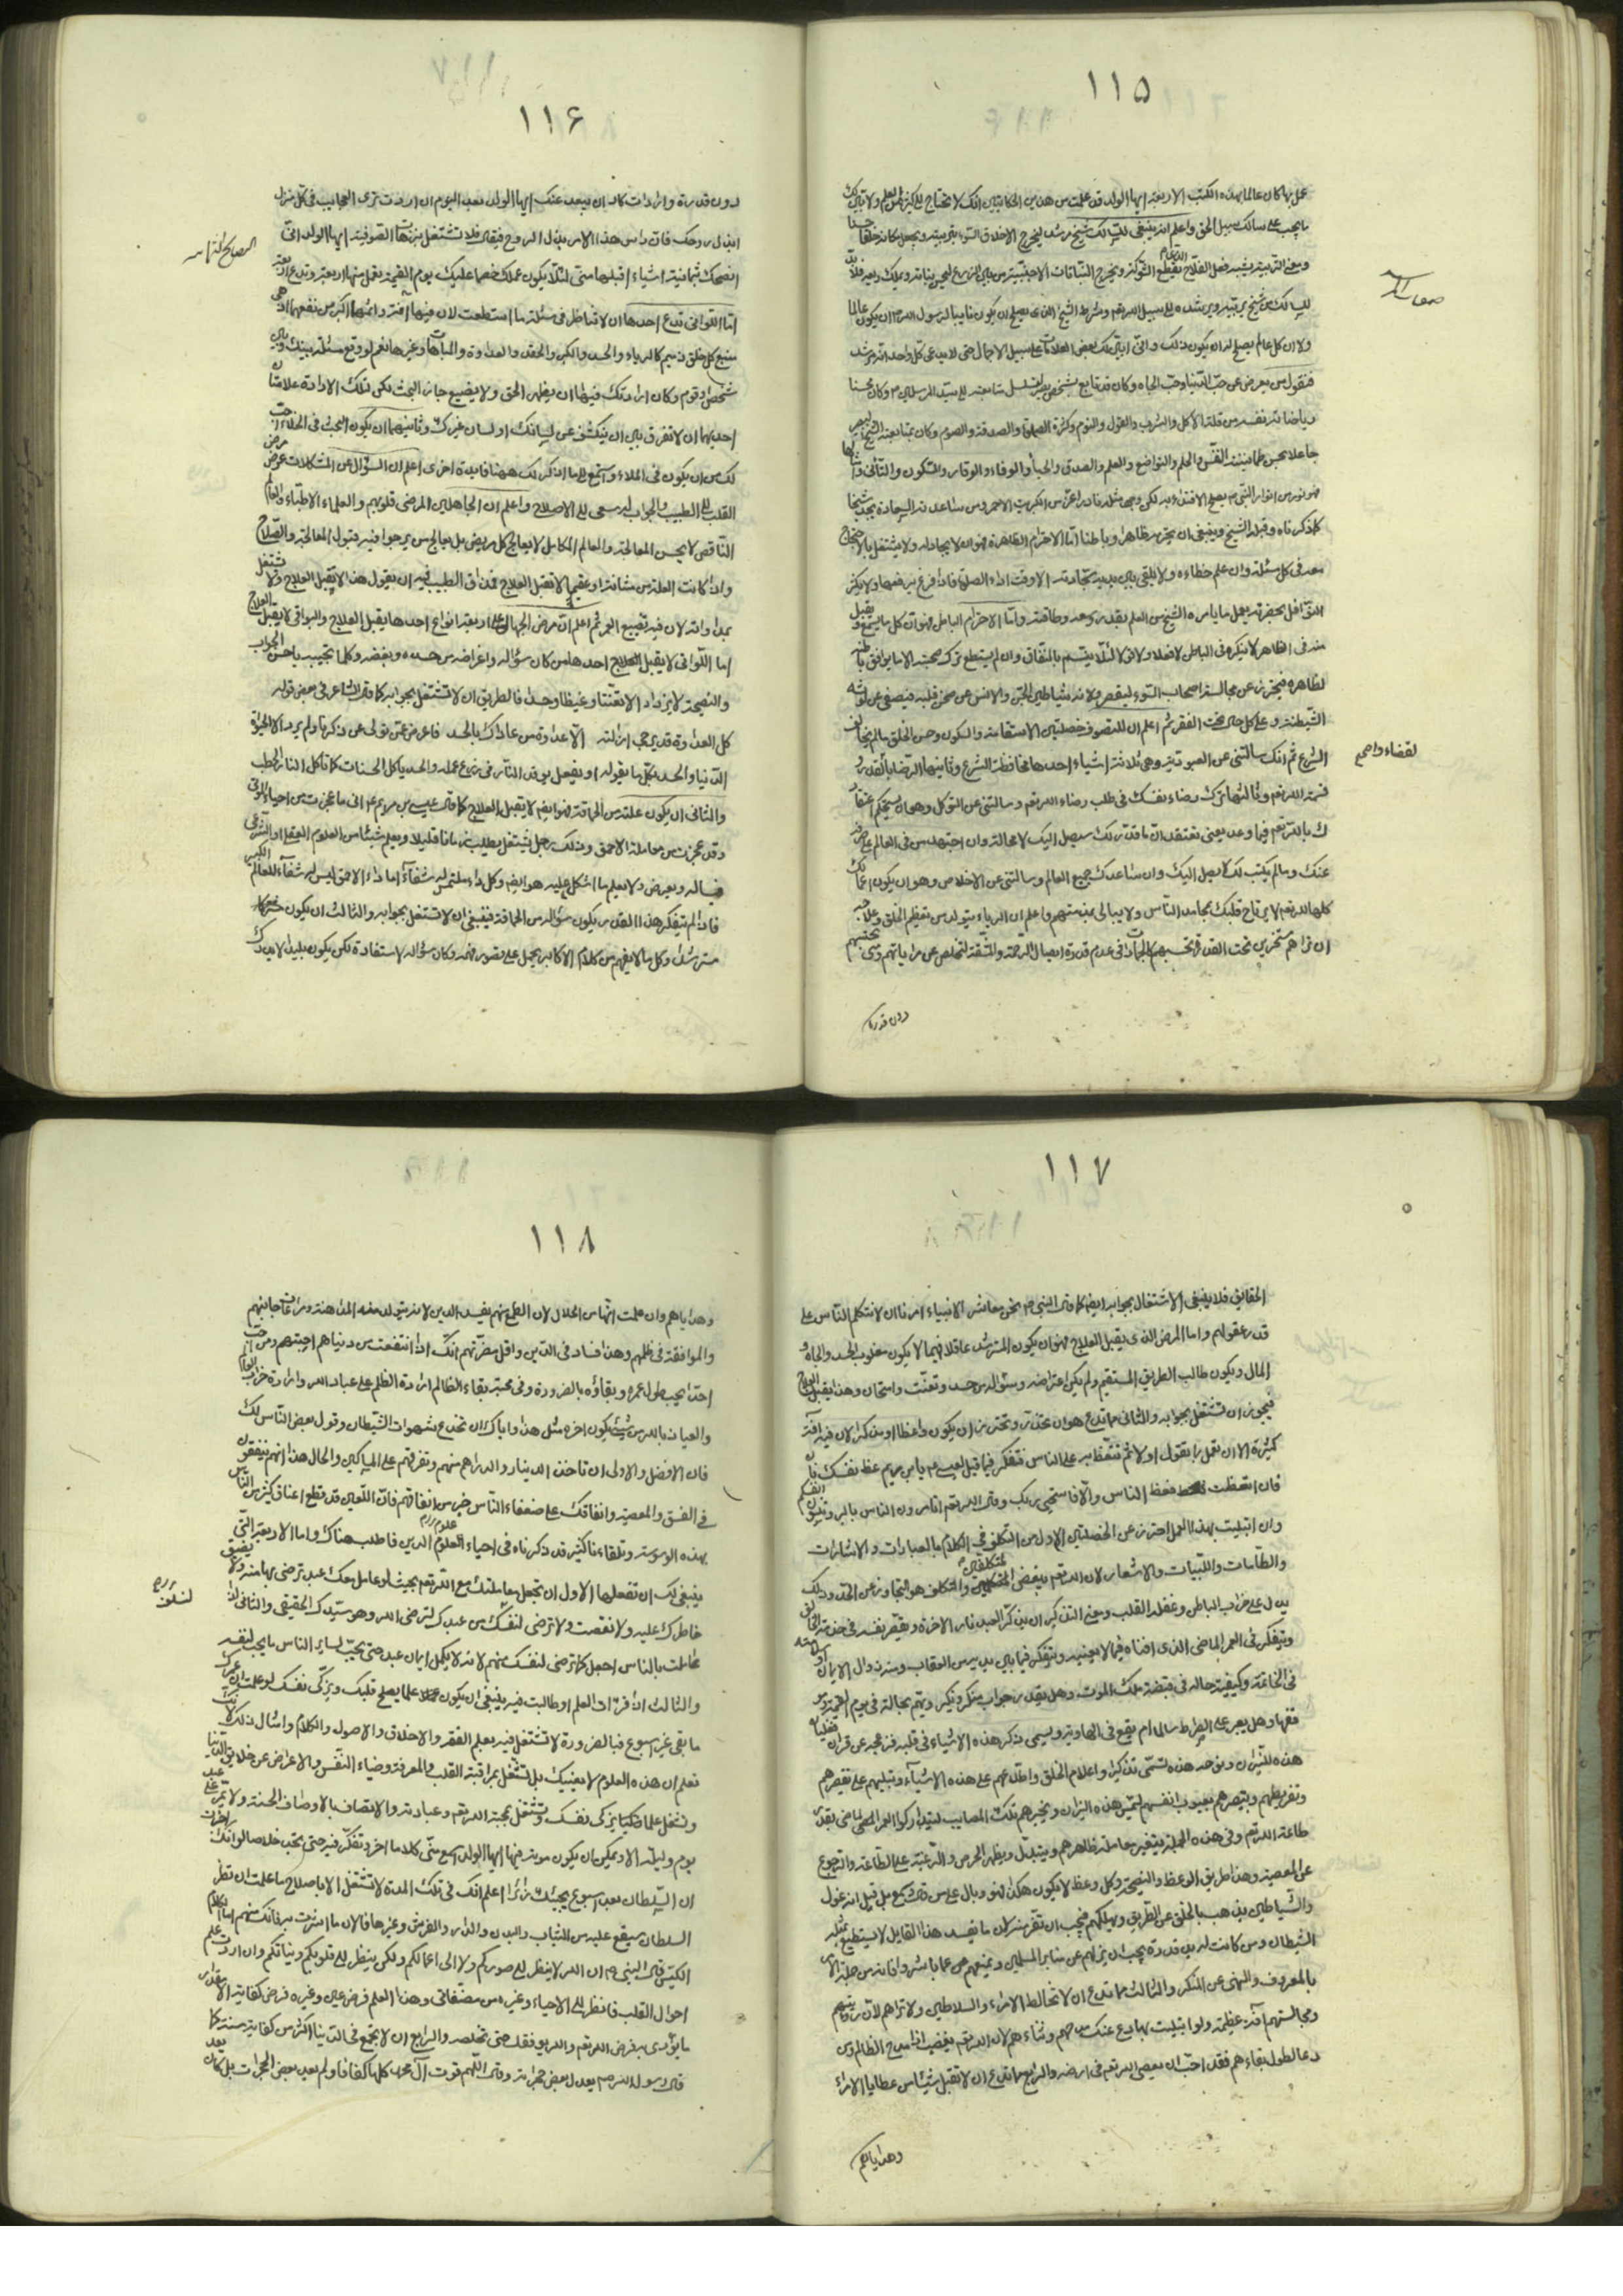 ١١٥
عمل بها كان عالما بهذه الكتب الاربعة ايها الولد قد علمت من هذين الحكايتين انك لا تحتاج الى تكثير العلم ولا
ما يجب على سالك سبيل الحق واعلم انه ينبغى للسالك شيخ مرشد ليخرج الاخلاق السوء بتربيته ويجعل مكانه خلقا حسنا
ومعنى التربية يشبه فعل الفلاح الذى يقطع الشوك ويخرج النباتات الاجنبية من بين الزرع ليحسن نباته ويكمل ريعه فلا بد
للسالك من شيخ يربيه ويرشده الى سبيل الله تعم وشرط الشيخ الذى يصلح ان يكون نايبا لرسول الله ص ان يكون عالما
ولا ان كل عالم يصلح له ان يكون كذلك وانى ابين لك بعض العلامات على سبيل الاجمال حتى لا يدعى كل واحد انه مرشد
فنقول من يعرض عن حب الدنيا وحب الجاه وكان قد تابع لشخص بصير تتسلسل متابعته الى سيد المرسلين ص وكان محسنا
رياضة نفسه من قلة الاكل والشرب والقول والنوم وكثرة الصلوة والصدقة والصوم وكان بمتابعته الشيخ البصير
جاعلا محسن طمانينة النفس والحلم والتواضع والعلم والصدق والحياء والوفاء والوقار والسكون والتأنى وامثالها
فهو نور من انوار النبى ص يصلح الاقتداء به لكن وجود مثله نادر اعز من الكبريت الاحمر ومن ساعدته السعادة يجد شيخا
كما ذكرناه وقبله الشيخ وينبغى ان يحترمه ظاهرا وباطنا اما الاحترام الظاهر فهو ان لا يجادله ولا يشتغل بالاحتجاج
معه فى كل مسئلة وان علم خطاءه ولا يلقى بين يديه سجادته الا وقت اداء الصلوة فاذا فرغ يرفعها ولا يكثر
النوافل بحضرته ويعمل ما يامره الشيخ من العلم بقدر وسعه وطاقته واما الاحترام الباطن فهو ان كل ما يسمع ويقبل
منه فى الظاهر لا ينكره فى الباطن لا فعلا ولا قولا لئلا يتسم بالنفاق وان لم يستطع ترك صحبته الا ما يوافق باطنه
لظاهره فيحترز عن مجالسة اصحاب السوء ليقصر ولاية شياطين الجن والانس عن صحن قلبه فيصفى عن لوثة
الشيطنة وعلى كل حال يختار الفقر ثم اعلم ان للتصوف خصلتين الاستقامة والسكون وحسن الخلق ما لم يخالف
الشرع ثم انك سالتنى عن العبودية وهى ثلاثة اشياء احدها محافظة الشرع وثانيها الرضاء بالقدر و
قسمة الله تعم وثالثها ترك رضاء نفسك فى طلب رضاء الله تعم وسالتنى عن التوكل وهو ان يستحكم اعتقاد
ك بالله تعم فيما وعد يعنى تعتقد ان ما قدر لك سيصل اليك لا محالة وان اجتهد من فى العالم على صرفه
عنك وما لم يكتب لك لا يصل اليك وان ساعدك جميع العالم وسالتنى عن الاخلاص وهو ان يكون اعمالك
كلها لله تعم لا يرتاح قلبك بمحامد الناس ولا يبالى بمذمتهم واعلم ان الرياء يتولد من تعظيم الخلق وعلاجه
ان تراهم مسخرين تحت القدرة وتحسبهم كالجمادات فى عدم قدرة ايصال الرحمة والمشقة لتخلص عن مراياتهم ومتى تحسبهم
دون قدرة
لقضاء واجبهم
١١٦
دون قدرة وارادات كاد ان يبعد عنك ايها الولد بعد اليوم ان اردت ترى العجايب فى كل منزل
ابذل روحك فان راس هذا الامر بذل الروح فيقال فلا تشتغل بترهات الصوفية ايها الولد انى
انصحك بثمانية اشياء اقبلها منى لئلا يكون عملك خصما عليك يوم القيمة تعمل منها اربعة وتدع اربعة
اما اللواتى تدع احدها ان لا تناظر فى مسئلة ما استطعت لان فيها آفة واثمها اكبر من نفعها اذ هى
منبع كل خلق ذميم كالرياء والحسد والكبر والحقد والعداوة والمباهات وغيرها نعم لو وقع مسئلة بينك وبين
شخص او قوم وكان ارادتك فيها ان يظهر الحق ولا يضيع جاز البحث لكن لتلك الارادة علامتان
احديهما ان لا تفرق بين ان ينكشف عن لسانك او لسان غيرك وثانيتهما ان يكون البحث فى الخلاء احب
لك من ان يكون فى الملاء واسمع الى ما اذكر لك ههنا فايدة اخرى اعلم ان السؤال عن المشكلات عرض مرض
القلب الى الطبيب والجواب له سعى الى الاصلاح واعلم ان الجاهلين المرضى قلوبهم والعلماء الاطباء والعالم
الناقص لا يحسن المعالجة والعالم الكامل لا يعالج كل مريض بل يعالج من يرجوا فيه قبول المعالجة والصلاح
واذا كانت العلة مزمنة او عقيما لا تقبل العلاج فحذاقة الطبيب فيه ان يقول هذا لا يقبل العلاج ولا تشتغل
بمداواته لان فيه تضييع العمر ثم اعلم ان مرض الجهال على اربعة انواع احدها يقبل العلاج والبواقى لا يقبل العلاج
اما اللواتى لا يقبل العلاج احدها من كان سؤاله واعتراضه من حسده وبغضه وكلما تجيبه باحسن الجواب
والنصيحة لا يزداد الا تعنتا وغيظا وحسدا فالطريق ان لا تشتغل بجوابه كما قال الشاعر فى بعض قوله
كل العداوة قد يرجى ازالته الا عداوة من عاداك بالحسد فاعرض عن من تولى عن ذكرنا ولم يرد الا الحيوة
الدنيا والحسد بكل ما يقوله او يفعل يوقد النار فى زرع عمله والحسد ياكل الحسنات كما تاكل النار الحطب
والثانى ان يكون علته من الحماقة فهو ايضا لا يقبل العلاج كما قال عيسى بن مريم عم انى ما عجزت من احياء الموتى
وقد عجزت من معاملة الاحمق وذلك رجل يشتغل بطلب زمانا قليلا ويعلم شيئا من العلوم العقلى والشرعى
فيساله ويعرض ولا يعلم ما اشكل عليه هو ايضا وكل داء ملتمس له شفاء اما داء الاحمق ليس له شفاء للعالم الكبير
فاذا لم يتفكر هذا القدر يكون سؤاله من الحماقة فينبغى ان لا تشتغل بجوابه والثالث ان يكون
مسترشدا وكل ما لا يفهم من كلام الاكابر يحمل على قصور فهمه وكان سؤاله لاستفادة لكن يكون بليدا لا يدرك
١١٧
الحقايق فلا ينبغى الاشتغال بجوابه ايضا كما قال النبى ص نحن معاشر الانبياء امرنا ان لا نتكلم الناس على
قدر عقولهم واما المرض الذى يقبل العلاج فهو ان يكون المسترشد عاقلا فهيما لا يكون مغلوب الحسد والجاه و
المال ويكون طالب الطريق المستقيم ولم يكن اعتراضه وسؤاله من حسد وتعنت وامتحان وهذا يقبل العلاج
فيجوز ان تشتغل بجوابه والثانى مما تدع هو ان تحذر وتحترز ان يكون واعظا او مذكرا لان فيه آفة
كثيرة الا ان تعمل بما تقول اولا ثم تتعظ به على الناس فتفكر فيما قيل لعيسى عم يا بن مريم عظ نفسك
فان اتعظت فعظ الناس والا فاستحيى ربك وقال الله تعم اتامرون الناس بالبر وتنسون انفسكم
وان ابتليت بهذا العمل احترز عن الخصلتين الاول من التكلف فى الكلام بالعبارات والاشارات
والطامات والابيات والاشعار لان الله تعم يبغض المتكلفين والتكلف هو التجاوز عن الحد وذلك
يدل على خراب الباطن وغفلة القلب ومعنى التذكير ان يذكر العبد نار الآخرة وتقصير نفسه فى خدمة الخالق
ويتفكر فى العمر الماضى الذى افناه فيما لا يعنيه ويتفكر فيما بين يديه من العقاب ومنه زوال الايمان
فى الخاتمة وكيفية حاله فى قبضة ملك الموت وهل يقدر جواب منكر ونكير ويهتم بحاله فى يوم القيمة ومو
قفها وهل يعبر على الصراط سالما ام يقع فى الهاوية ويسمى ذكر هذه الاشياء فى قلبه فزعجه عن قراره فغليان
هذه النيران ونوحة هذه تسمى تذكيرا واعلام الخلق واطلاعهم على هذه الاشياء وتنبيههم على تقصيرهم
وتفريطهم وتبصرهم بعيوب انفسهم لتمس هذه النيران وتجبرهم تلك المصايب ليتداركوا العمر الماضى بقدر
طاعة الله تعم وفى هذه الجملة يتغير معاملة ظاهرهم ويتبدل ويظهر الحرص والرغبة على الطاعة والرجوع
عن المعصية وهذا طريق الوعظ والنصيحة وكل وعظ لا يكون هكذا فهو وبال على من قال ويسمع بل قيل انه غول
والشياطين يذهب بالخلق عن الطريق ويهلكهم فيجب ان تفر منه لان ما يفسد هذا القايل لا يستطيع بمثله
الشيطان ومن كانت له يد وقدرة يجب ان ينزلهم عن منابر المسلمين ويمنعهم عن ما باشروا فانه من جملة الامر
بالمعروف والنهى عن المنكر والثالث مما تدع ان لا تخالط الامراء والسلاطين ولا تراهم لان رؤيتهم
ومجالستهم آفة عظيمة ولو ابتليت بها دع عنك مدحهم وثناءهم لان الله تعم يغضب اذا مدح الظالم ومن
دعا لطول بقاءهم فقد احب ان يعصى الله تعم فى ارضه والرابع مما تدع ان لا تقبل شيئا من عطايا الامراء
وهداياهم
١١٨
وهداياهم وان علمت انها من الحلال لان الطمع منهم يفسد الدين لانه يتولد منه المداهنة ومراعات جانبهم
والموافقة فى ظلمهم وهذا فساد فى الدين واقل مضرتهم انك اذا انتفعت من دنياهم احببتهم ومن احب
احدا يحب طول عمره وبقاؤه بالضرورة وفى محبة بقاء الظالم ارادة الظلم على عباد الله وارادة خراب العالم
والعياذ بالله من شئ يكون آخره مثل هذا واياك ان تخدع بشهوات الشيطان وقول بعض الناس لك
فان الافضل والاولى ان تاخذ الدينار والدراهم منهم وتفرقهم على المساكين والحال هذا انهم ينفقون
فى الفسق والمعصية وانفاقك على ضعفاء الناس خير من انفاقهم فان اللعين قد قطع اعناق كثير من الناس
بهذه الوسوسة وتلقاءنا كثير قد ذكرناه فى احياء العلوم الدين فاطلب هناك واما الاربعة التى
ينبغى لك ان تفعلها الاول ان تجعل معاملتك مع الله تعم بحيث لو عامل معك عبد ترضى بها منه ولا يضيق
خاطرك عليه ولا نقصت ولا ترضى لنفسك من عبدك لترضى الله وهو سيدك الحقيقى والثانى
عاملت بالناس اجعل كما ترضى لنفسك منهم لانه لا يكمل ايمان عبد حتى يحب لساير الناس ما يحب لنفسه
والثالث اذا قرات العلم او طالعت فيه ينبغى ان يكون علما يصلح قلبك ويزكى نفسك لو علمت ان عمرك
ما بقى غير اسبوع فبالضرورة لا تشتغل فيه بعلم الفقه والاخلاق والاصول والكلام وامثال ذلك
تعلم ان هذه العلوم لا يغنيك بل تشتغل بمراقبة القلب والمعرفة وضياء النفس والاعراض عن خلايق الدنيا
وتشتغل علما ضكيا يزكى نفسك وتشتغل بمحبة الله تعم وعبادته والاتصاف بالاوصاف الحسنة ولا يمر على عبد
يوم وليلة الا ويمكن ان يكون موته فيها ايها الولد اسمع منى كلاما آخر وتفكر فيه حتى تجد خلاصا لو انك
ان السلطان بعد اسبوع يجيئك زائرا اعلم انك فى تلك المدة لا تشتغل الا باصلاح ما علمت ان نظر
السلطان سيقع عليه من الثياب والبدن والدار والفرش وغيرها فالان ما اشرت به فانك فهم اما الكلام
الكيس قال النبى ص ان الله لا ينظر الى صوركم ولا الى اعمالكم ولكن ينظر الى قلوبكم ونياتكم وان اردت علم
احوال القلب فانظر الى الاحياء وغيره من مصنفاتى وهذا العلم فرض عين وغيره فرض كفاية الا مقدار
ما يؤدى به فرض الله تعم والله يوفقك حتى تحصله والرابع ان لا تجمع فى الدنيا اكثر من كفاية سنة كما
قال رسول الله ص يعد لبعض حجراته وقال اللهم قوت آل محمد كلها كفافا ولم يعد بعض الحجرات بل كان يعد